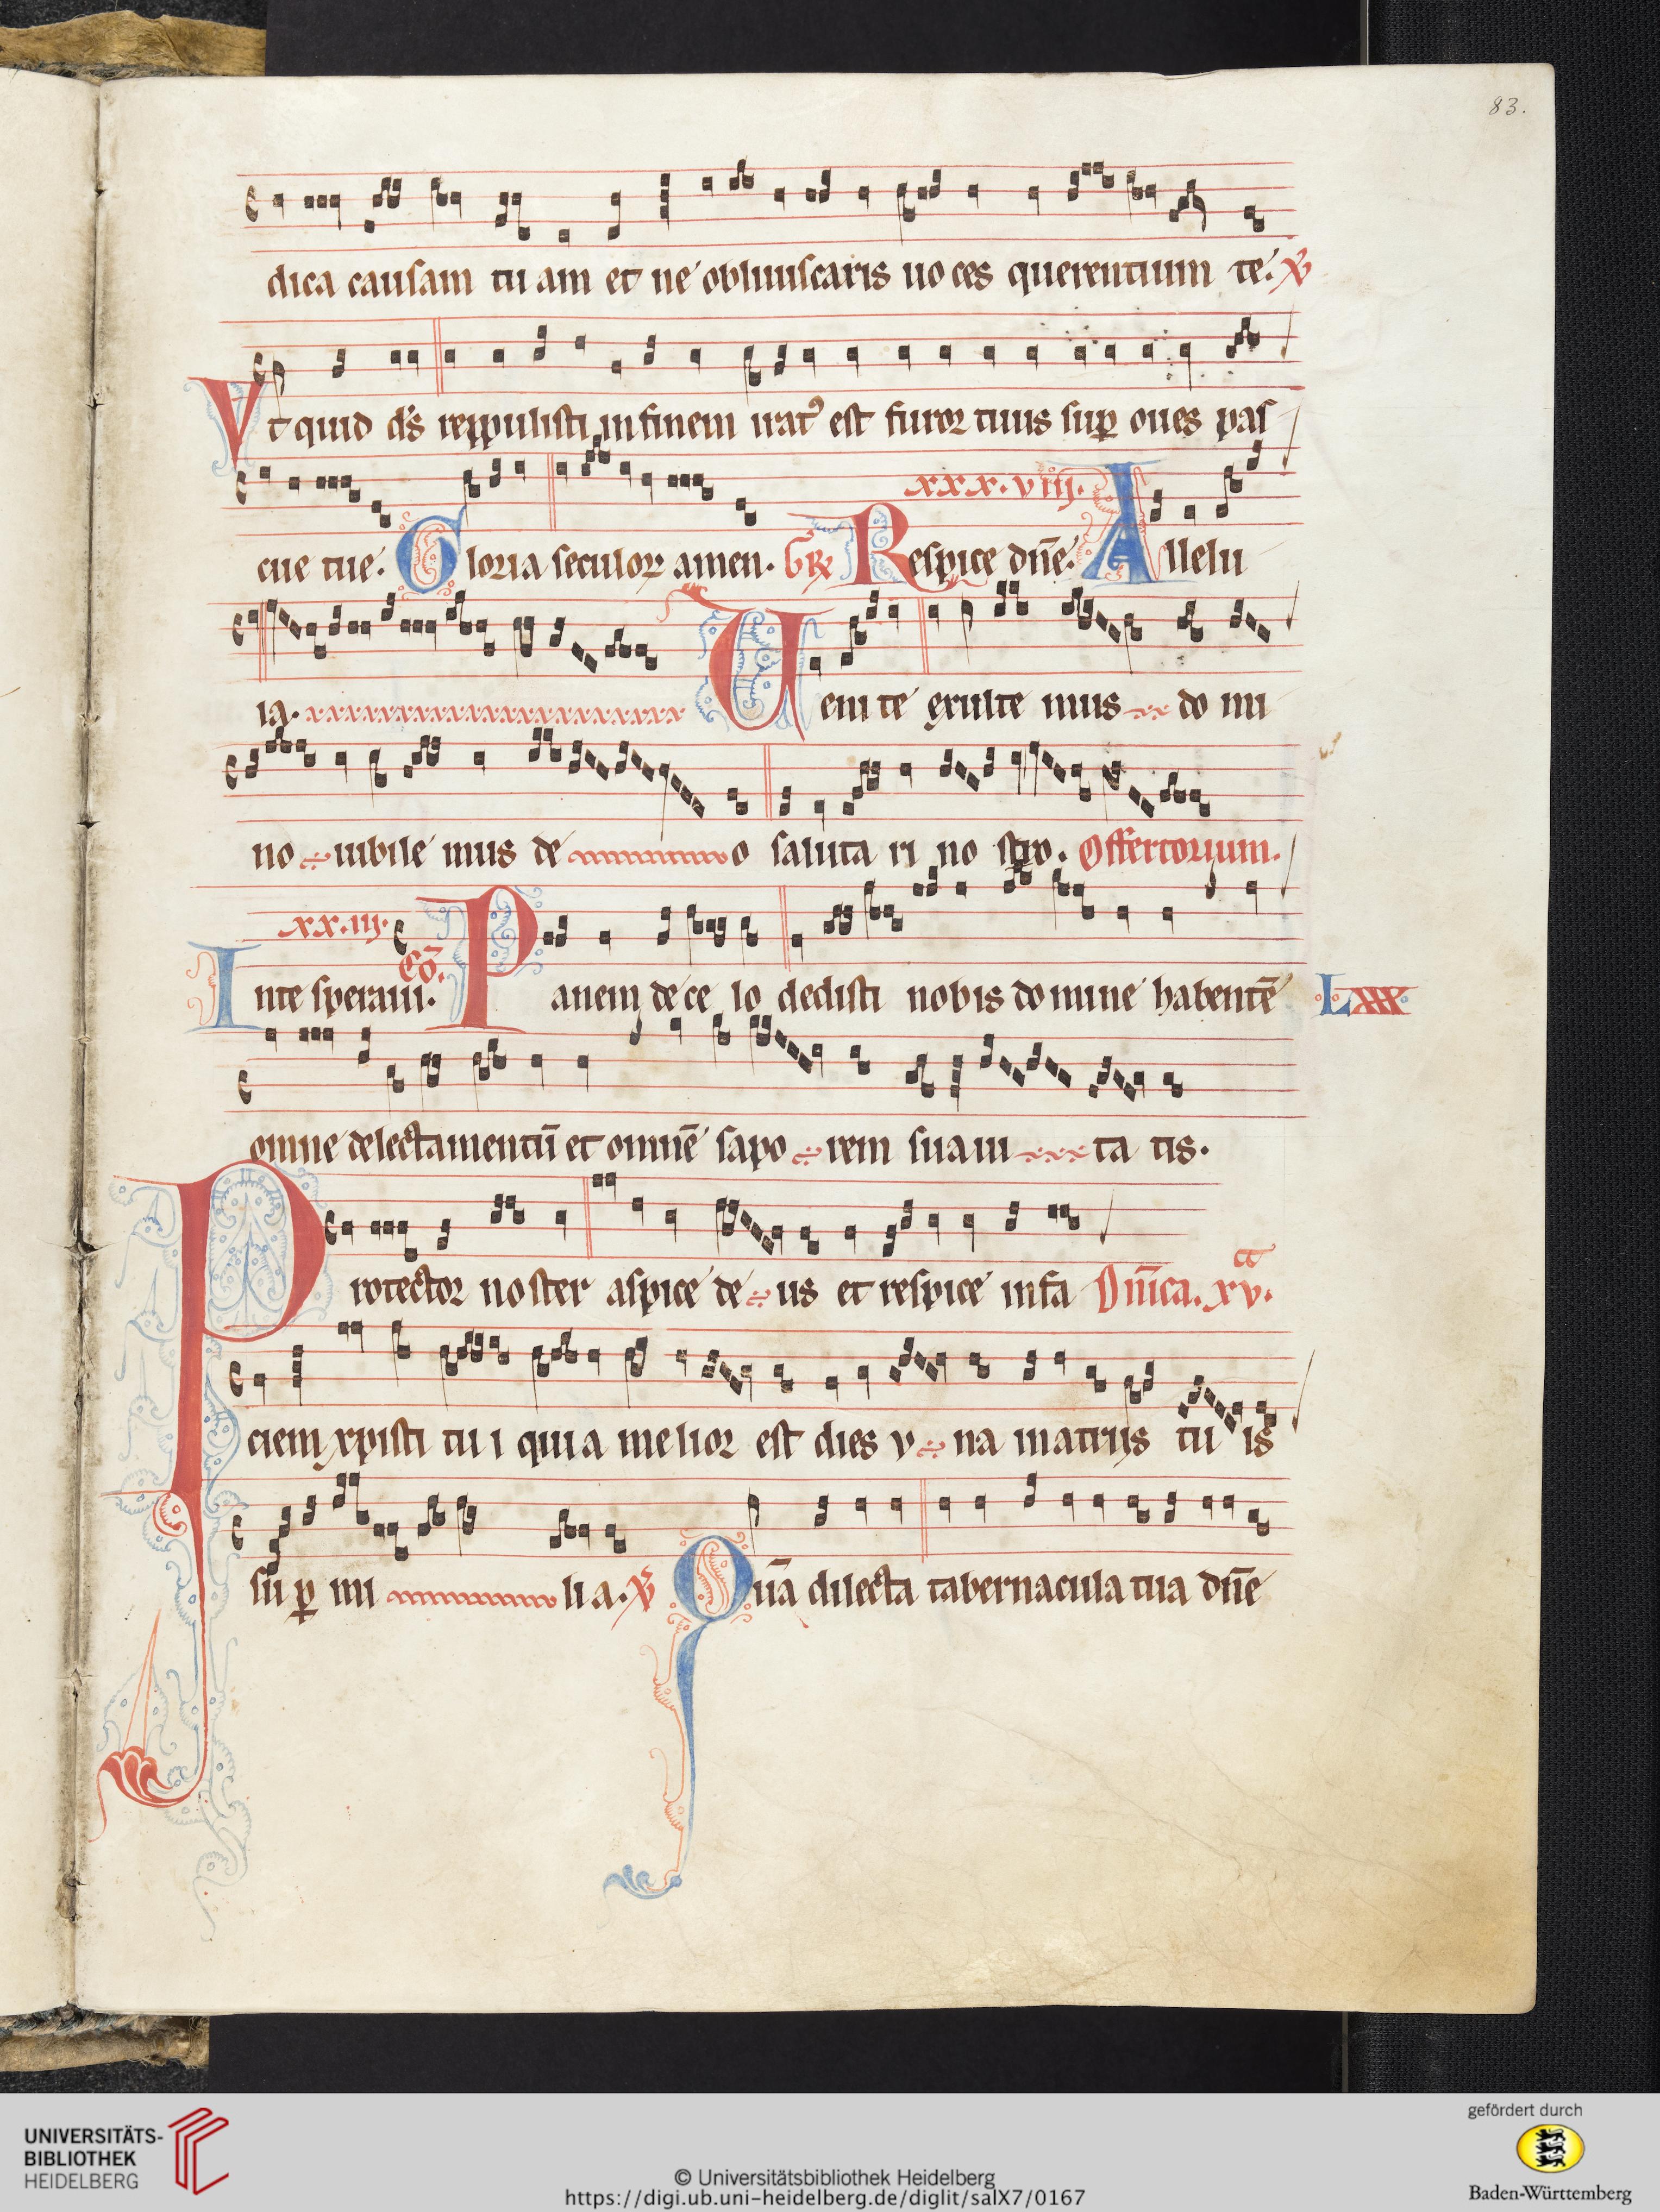 83.
dica causam tu am et ne obliuiscaris uo ces querentium te. ℣
Vt quid ds̄ reppulisti in finem irat᷒ est furor tuus sup̱ oues pas
cue tue. Gloria seculoꝝ amen. Gr℞ Respice dn̄e. xxx.viij. Allelu
ia. Ueni te exulte mus do mi
no iubile mus de o saluta ri no stro. Offertorium.
xx.iij.
In te speraui. Cō. Panem de ce lo dedisti nobis domine habentē Lxxx
omne delectamentū et omnē sapo rem suaui ta tis.
Protector noster aspice de us et respice in fa Dn̄ica. xv.
ciem xpisti tu i quia melior est dies v na in atriis tu is
su ꝑ mi li a. ℣ Quā dilecta tabernacula tua dn̄e
UNIVERSITÄTS-
BIBLIOTHEK
HEIDELBERG
© Universitätsbibliothek Heidelberg
https://digi.ub.uni-heidelberg.de/diglit/salX7/0167
gefördert durch
Baden-Württemberg